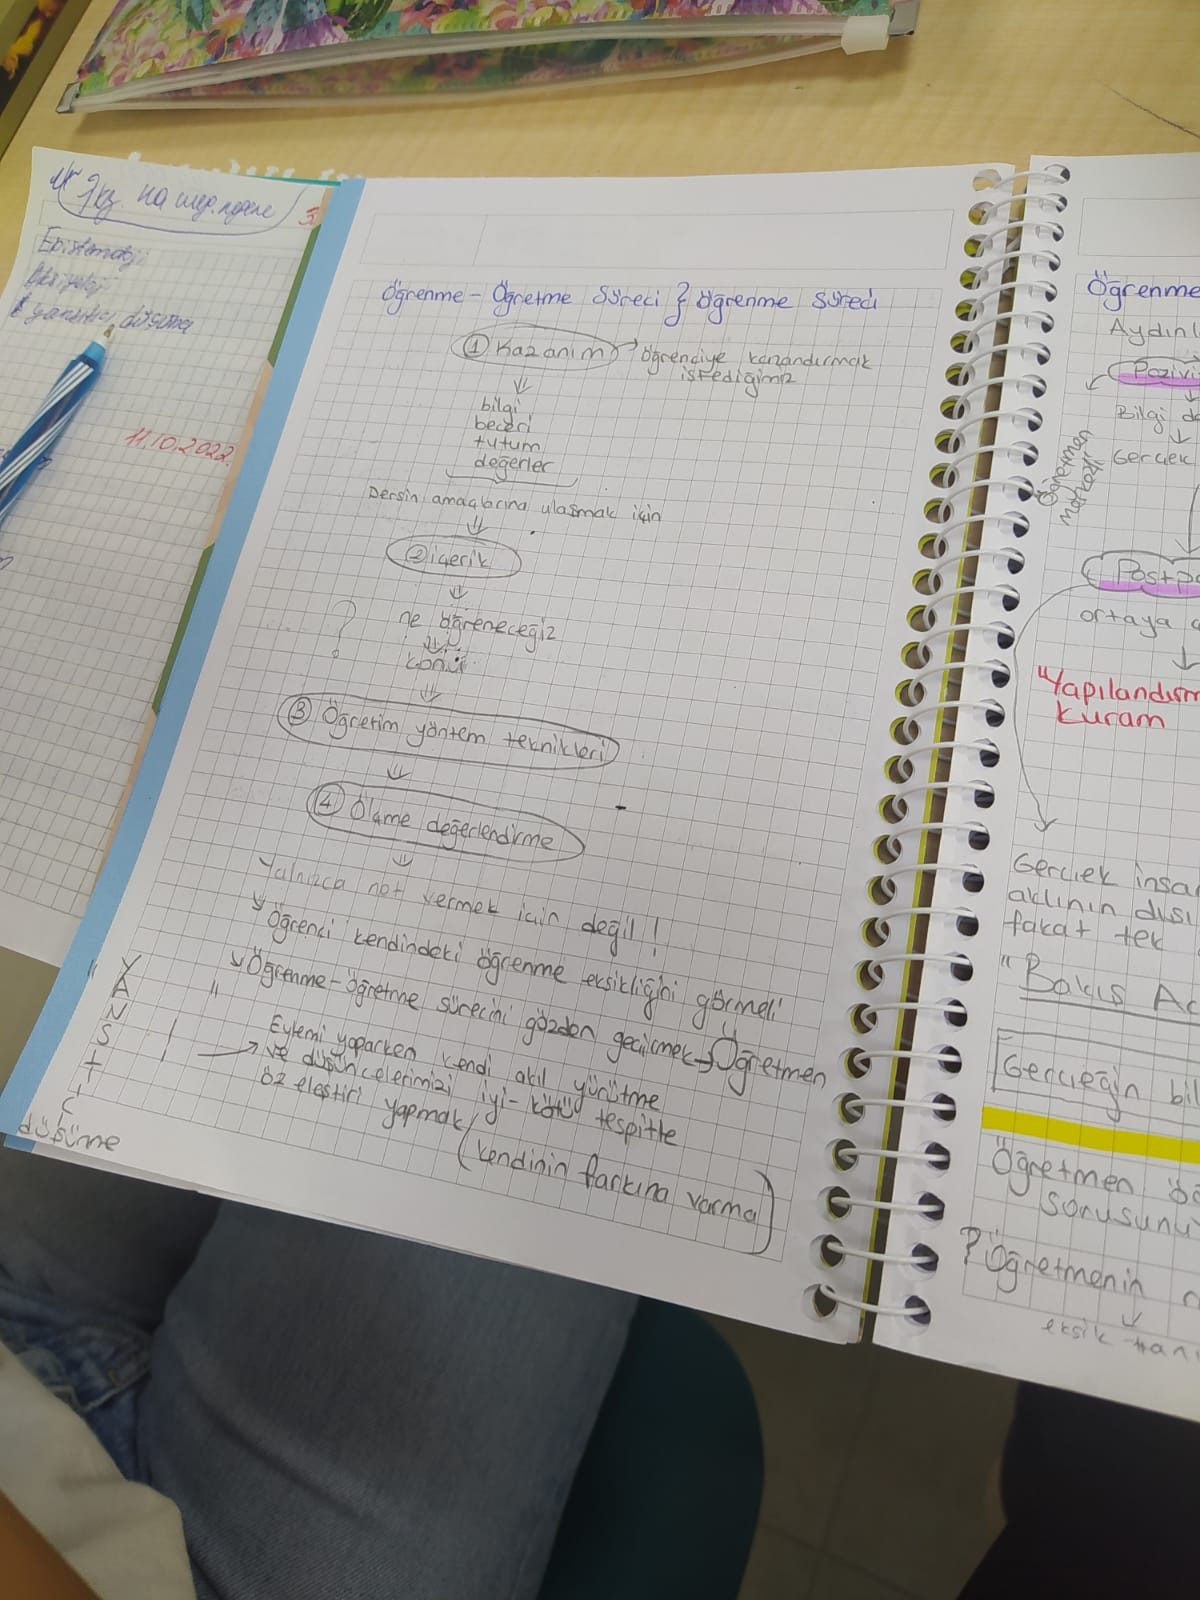 на след. неделе
3
Epistemoloji
Aksiyoloji
yansıtıcı düşünme
11.10.2022
Öğrenme - Öğretme Süreci } Öğrenme Süreci
① Kazanım → Öğrenciye kazandırmak
istediğimiz
bilgi
beceri
tutum
değerler
Dersin amaçlarına ulaşmak için
② içerik
? ne öğreneceğiz
konu
③ Öğretim yöntem teknikleri
④ Ölçme değerlendirme
Yalnızca not vermek için değil !
Öğrenci kendindeki öğrenme eksikliğini görmeli
Öğrenme-öğretme sürecini gözden geçirmek → Öğretmen
"YANSITICI"
düşünme
! → Eylemi yaparken kendi akıl yürütme
ve düşüncelerimizi iyi-kötü tespitle
öz eleştiri yapmak
(kendinin farkına varma)
Öğrenme
Aydınl
Pozivi
Bilgi
Gerçek
Öğretmen
merkezli
Postpo
ortaya
"Yapılandırm
kuram
Gerçek insa
aklının dışı
fakat tek
"Bakış Aç
Gerçeğin bil
Öğretmen öğ
sorusunu
? Öğretmenin
eksik